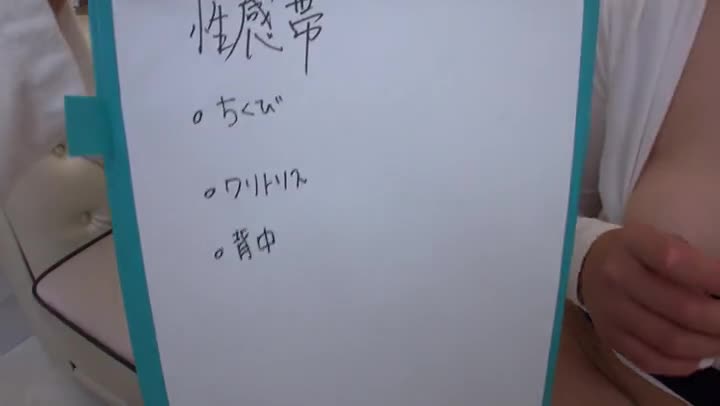 性感帯
○ ちくび
○ クリトリス
○ 背中